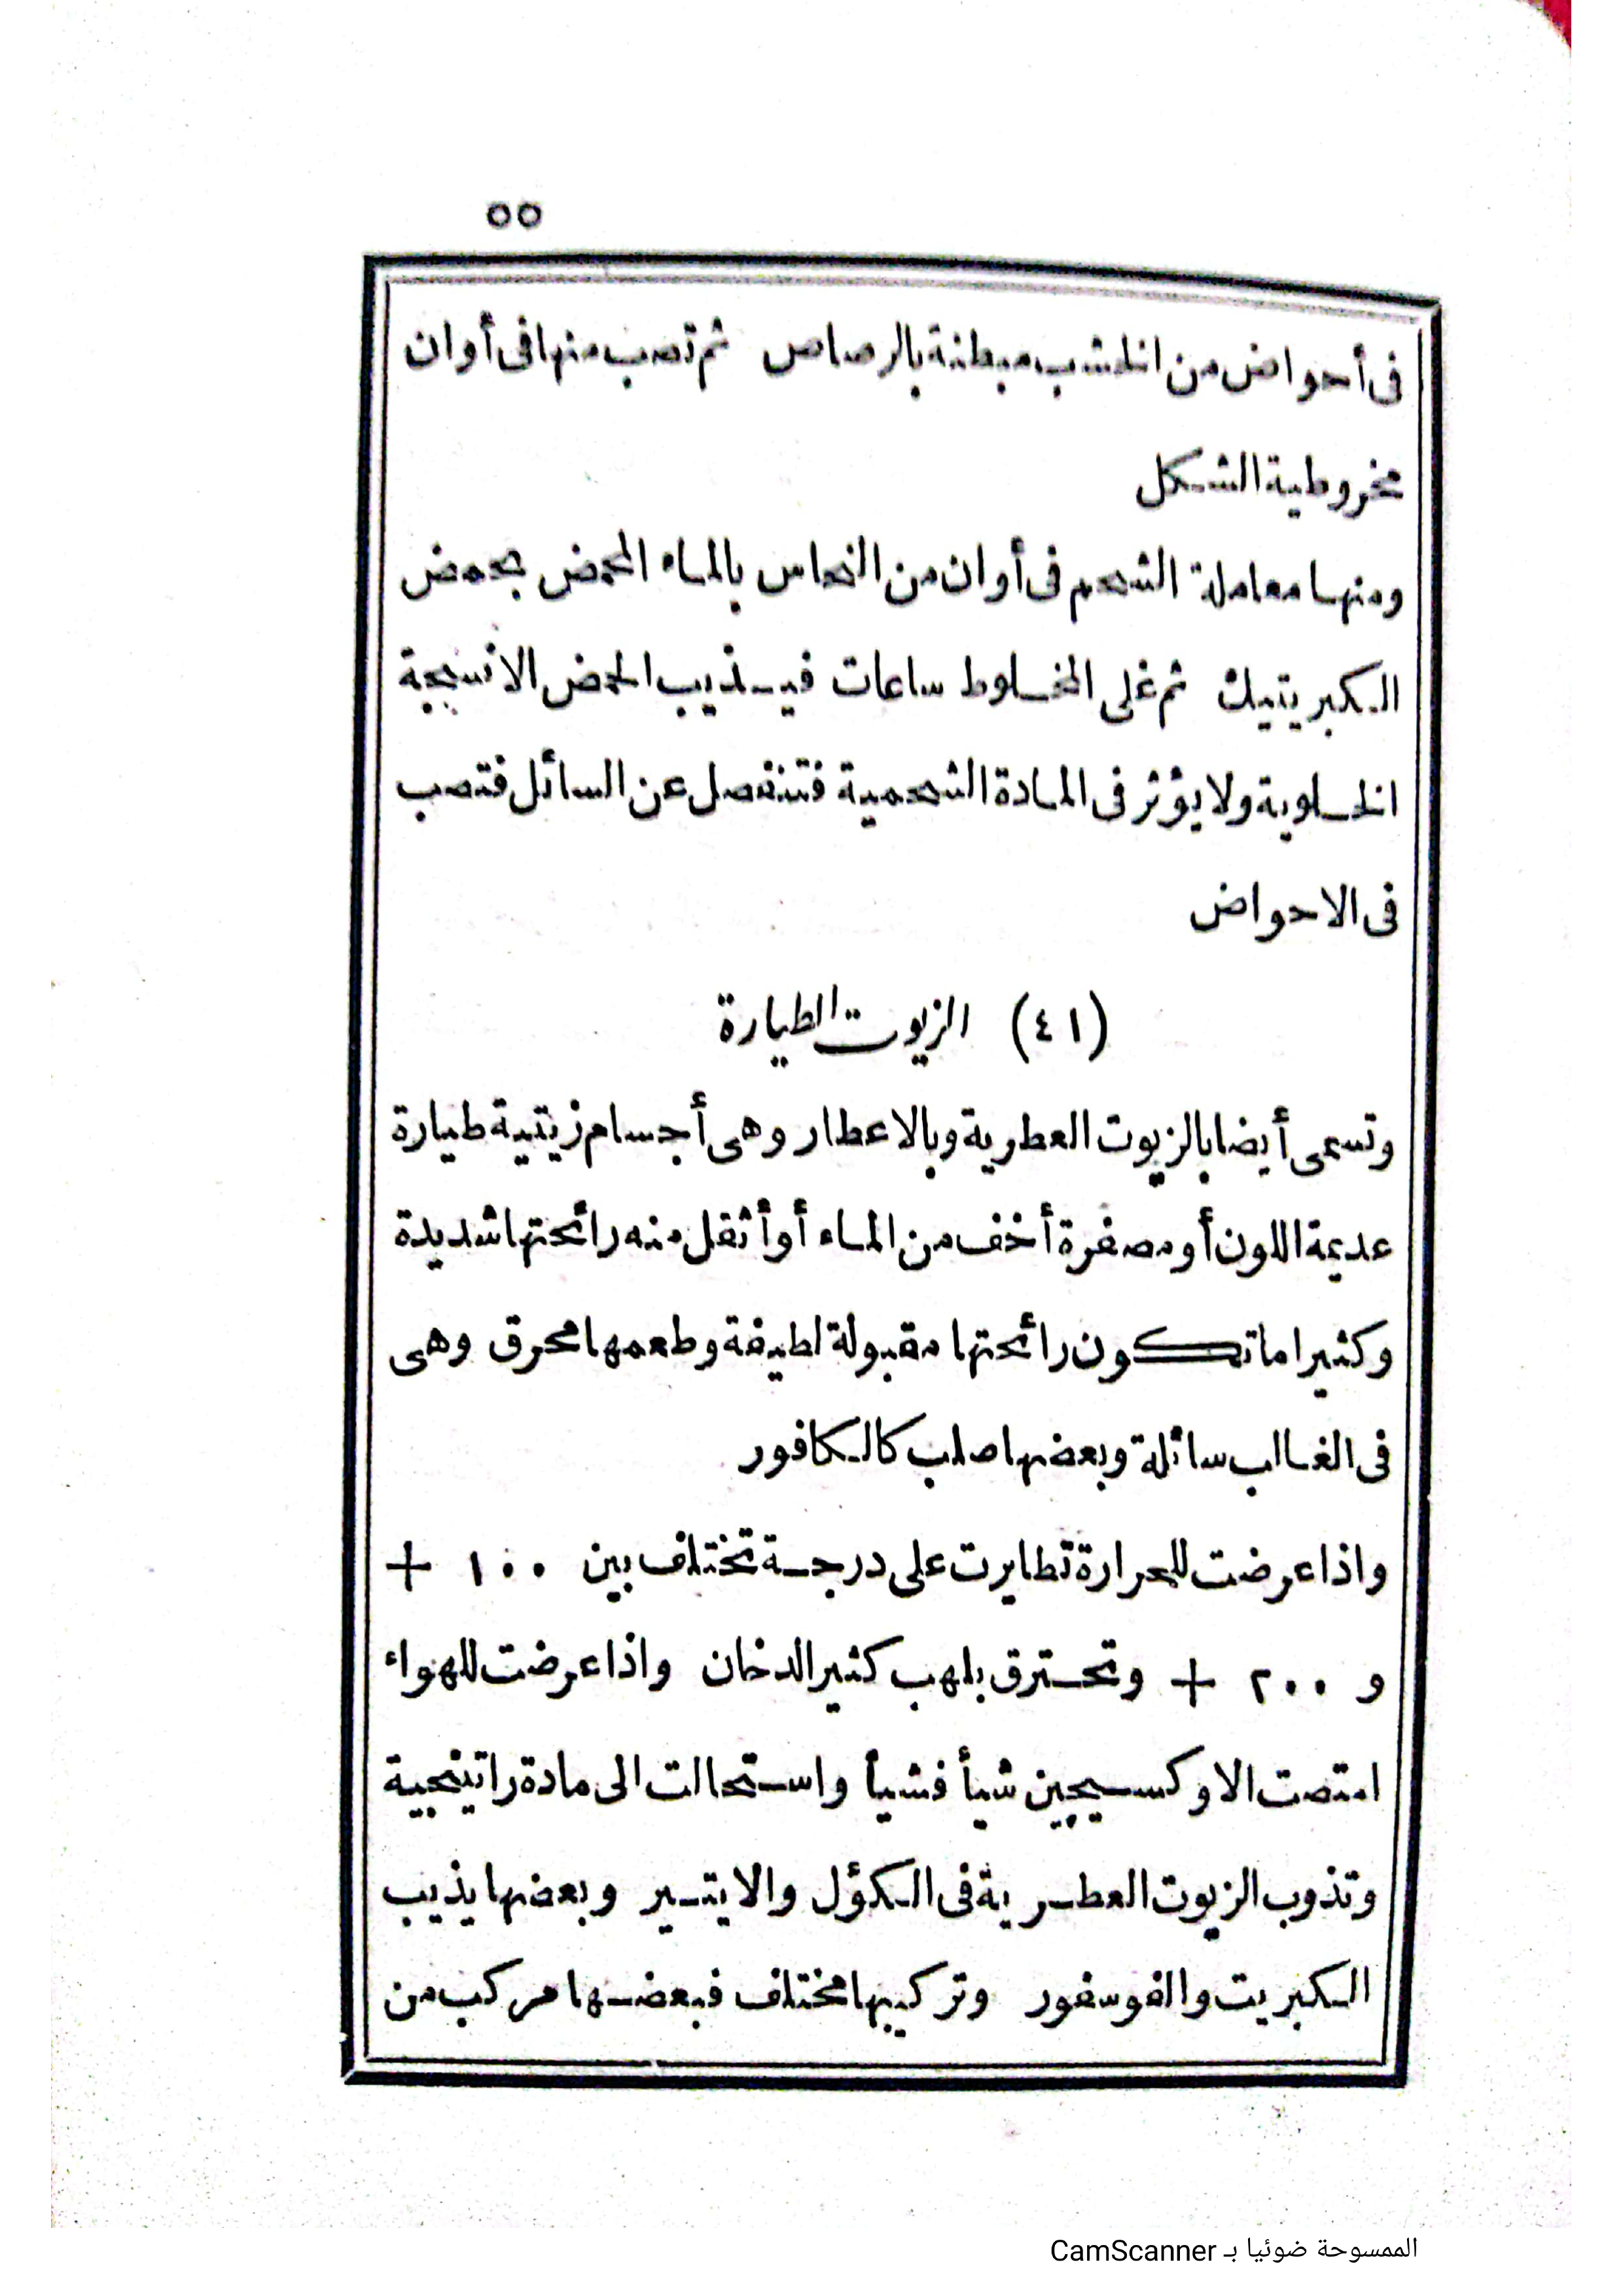 ٥٥
فى أحواض من الخشب مبطنة بالرصاص ثم تصب منها فى أوان
مخروطية الشكل
ومنها معاملة الشحم فى أوان من النحاس بالماء المحمض بحمض
الكبريتيك ثم غلى المخلوط ساعات فيذيب الحمض الانسجة
الخلوية ولا يؤثر فى المادة الشحمية فتنفصل عن السائل فتصب
فى الاحواض
(٤١) الزيوت الطيارة
وتسمى أيضا بالزيوت العطرية وبالاعطار وهى أجسام زيتية طيارة
عديمة اللون أو مصفرة أخف من الماء أو أثقل منه رائحتها شديدة
وكثيرا ما تكون رائحتها مقبولة لطيفة وطعمها محرق وهى
فى الغالب سائلة وبعضها صلب كالكافور
واذا عرضت للحرارة تطايرت على درجة تختلف بين ١٠٠ +
و ٢٠٠ + وتحترق بلهب كثير الدخان واذا عرضت للهواء
امتصت الاوكسيجين شيأ فشيأ واستحالت الى مادة راتينجية
وتذوب الزيوت العطرية فى الكؤل والايتير وبعضها يذيب
الكبريت والفوسفور وتركيبها مختلف فبعضها مركب من
الممسوحة ضوئيا بـ CamScanner